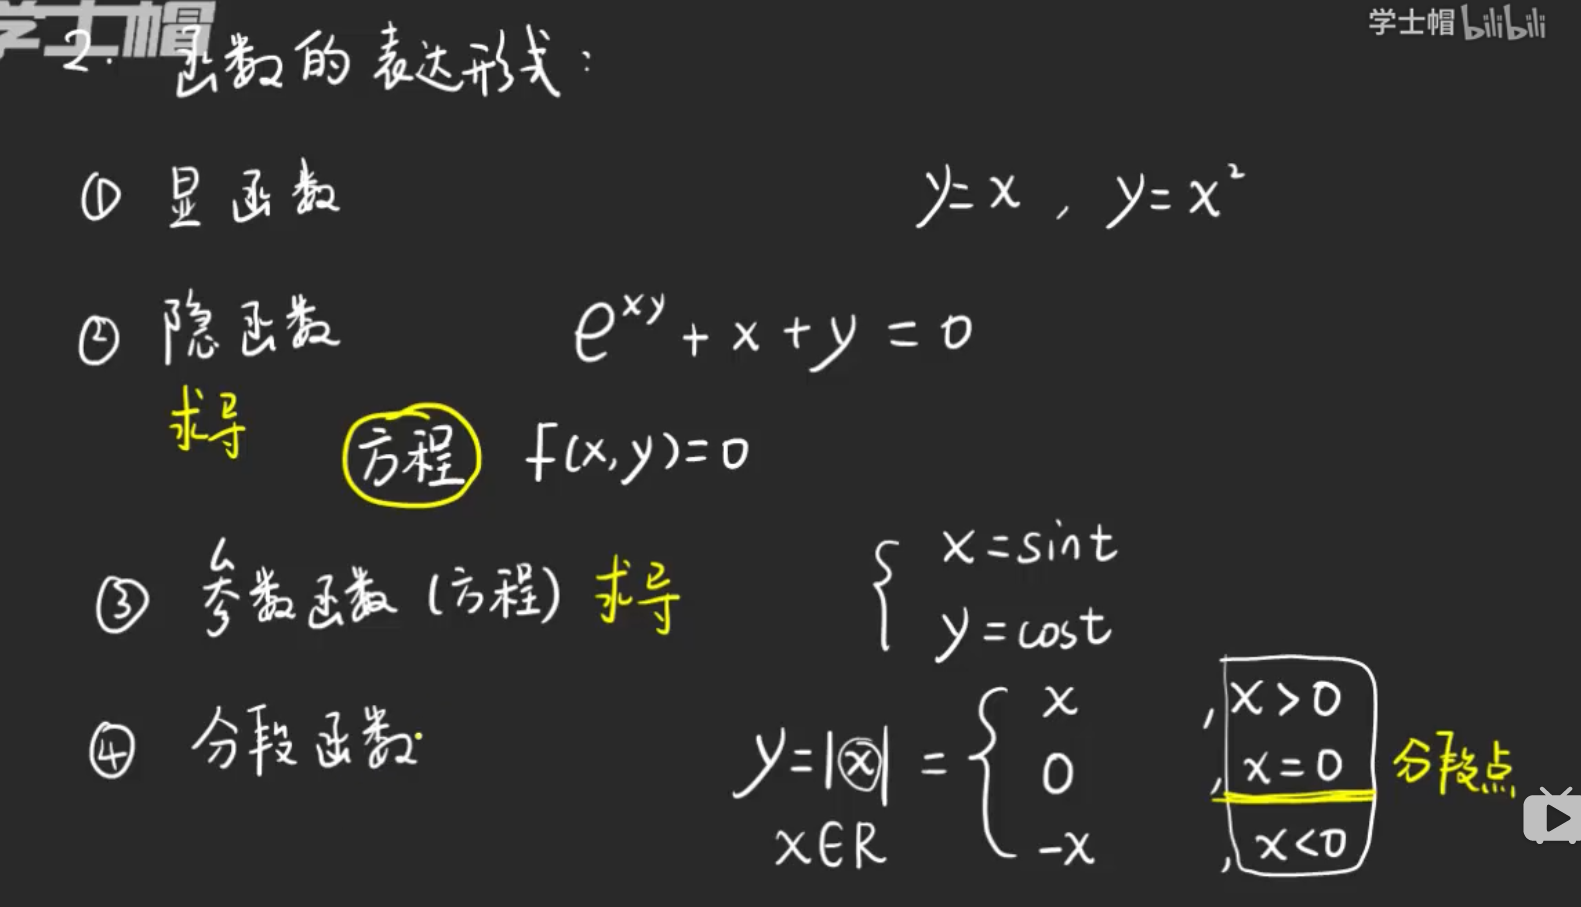 学士帽
学士帽 bilibili
2. 函数的表达形式:
① 显函数 y=x , y=x²
② 隐函数 e^{xy}+x+y=0
求导
方程 F(x,y)=0
③ 参数函数(方程) 求导 { x=sint
y=cost
④ 分段函数 y=|x| = { x , x>0
0 , x=0 分段点
-x , x<0
x∈R